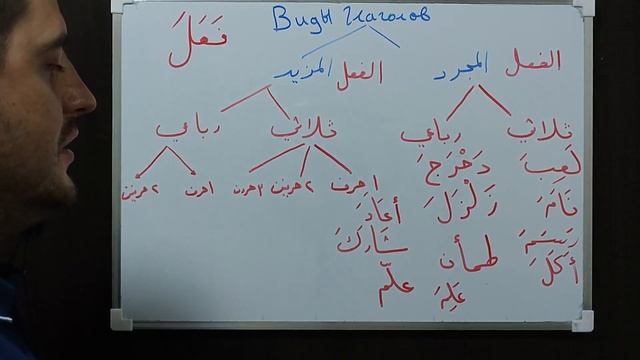 Виды глаголов
فَعَلَ
الفعل المجرد
الفعل المزيد
ثلاثي
رباعي
ثلاثي
رباعي
لَعِبَ
نَامَ
رَسَمَ
أَكَلَ
دَحْرَجَ
زَلْزَلَ
طمأن
عَلِمَ
١ حرف
٢ حرفين
٣ حرف
أَعَادَ
شَارَكَ
علّم
١ حرف
٢ حرفين